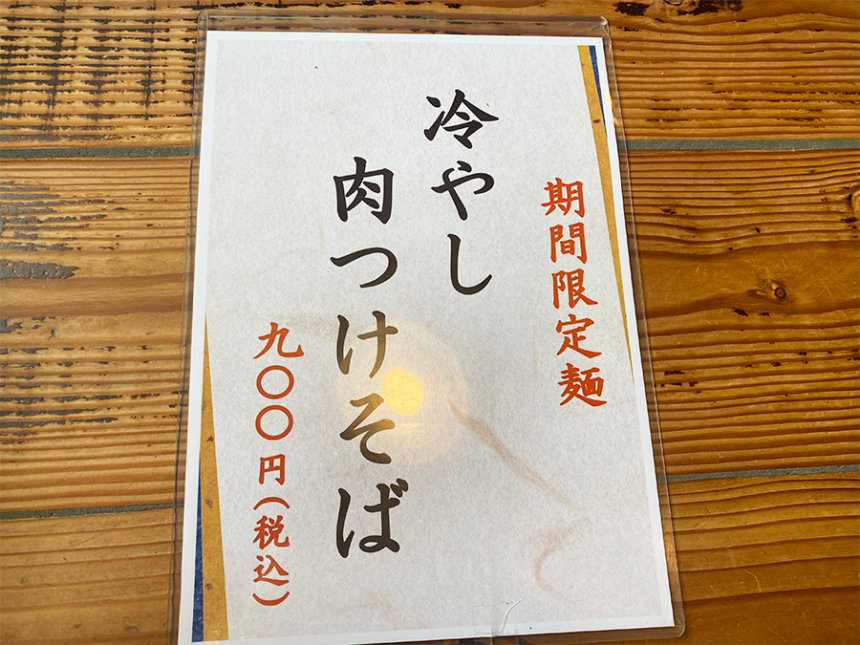 期間限定麺
冷やし
肉つけそば
九〇〇円(税込)